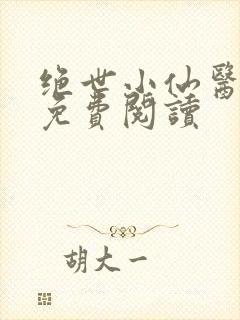 绝世小仙醫
免費閱讀
胡大一